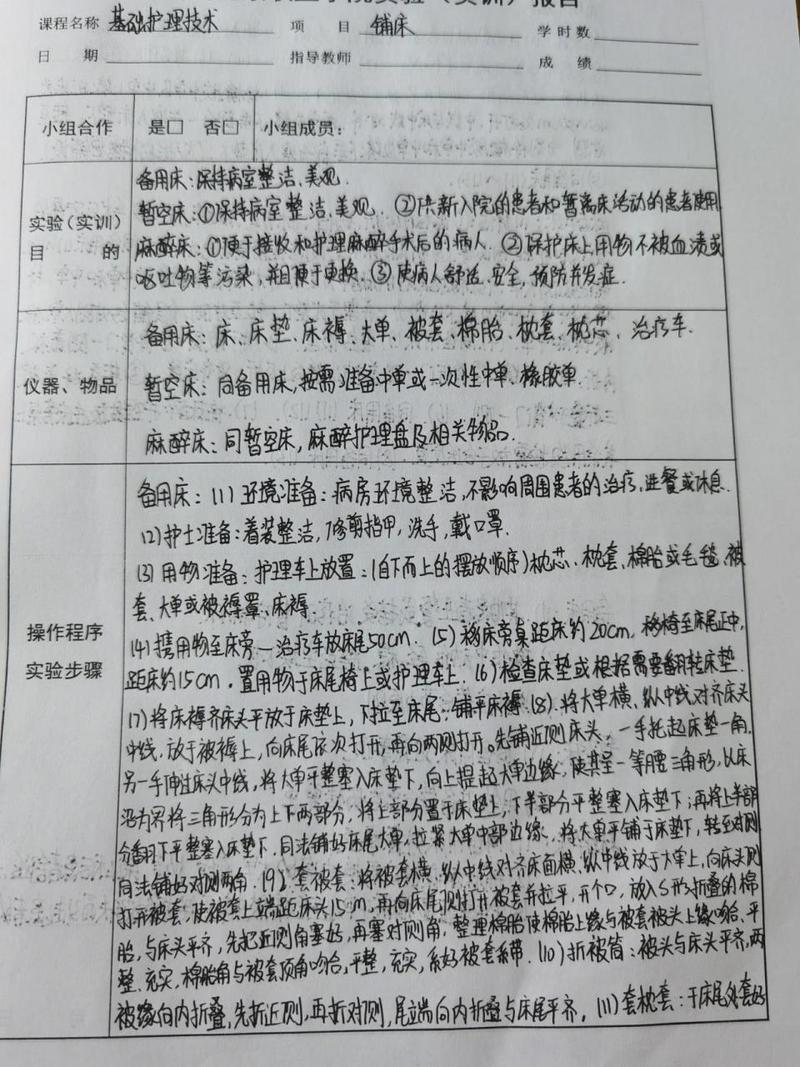 实验（实训）报告
课程名称 基础护理技术 项 目 铺床 学时数
日 期 指导教师 成 绩
小组合作 是□ 否□ 小组成员：
实验（实训）目的
备用床：保持病室整洁、美观.
暂空床：①保持病室整洁、美观. ②供新入院的患者和暂离床活动的患者使用
麻醉床：①便于接收和护理麻醉手术后的病人. ②保护床上用物不被血渍或
呕吐物等污染，并且便于更换. ③使病人舒适、安全，预防并发症.
仪器、物品
备用床：床、床垫、床褥、大单、被套、棉胎、枕套、枕芯、治疗车.
暂空床：同备用床，按需准备中单或一次性中单、橡胶单.
麻醉床：同暂空床，麻醉护理盘及相关物品.
操作程序
实验步骤
备用床：(1) 环境准备：病房环境整洁，不影响周围患者的治疗，进餐或休息.
(2) 护士准备：着装整洁，修剪指甲，洗手，戴口罩.
(3) 用物准备：护理车上放置：(自下而上的摆放顺序)枕芯、枕套、棉胎或毛毯、被
套、大单或被褥罩、床褥.
(4) 携用物至床旁一治疗车放床尾50cm. (5) 移床旁桌距床约20cm，移椅至床尾正中，
距床约15cm，置用物于床尾椅上或护理车上. (6) 检查床垫或根据需要翻转床垫.
(7) 将床褥齐床头平放于床垫上，下拉至床尾，铺平床褥. (8). 将大单横、纵中线对齐床头
中线，放于被褥上，向床尾依次打开，再向两侧打开。先铺近侧床头，一手托起床垫一角，
另一手伸过床头中线，将大单平整塞入床垫下，向上提起大单边缘，使其呈一等腰三角形，以床
沿为界将三角形分为上下两部分，将上部分置于床垫上，下半部分平整塞入床垫下；再将上半部
分翻下平整塞入床垫下. 同法铺好床尾大单，拉紧大单中部边缘，将大单平铺于床垫下，转至对侧
同法铺好对侧两角. (9) 套被套：将被套横、纵中线对齐床面横、纵中线放于大单上，向床头侧
打开被套，使被套上端距床头15m，再向床尾侧打开被套并拉平，开个口，放入S形折叠的棉
胎，与床头平齐，先把近侧角塞好，再塞对侧角，整理棉胎使棉胎上缘与被套被头上缘吻合，平
整、充实，棉胎角与被套顶角吻合，平整，充实，系好被套系带. (10) 折被筒：被头与床头平齐，两
被缘向内折叠，先折近侧，再折对侧，尾端向内折叠与床尾平齐，(11) 套枕套：于床尾处套好